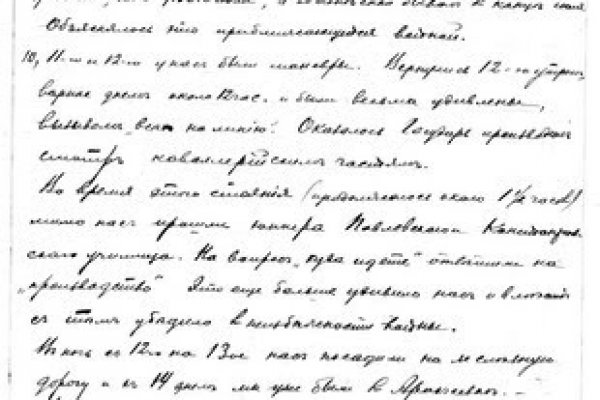 Объяснялось это приближающейся войной.
10, 11-го и 12-го у нас были маневры. Вернулись 12-го утром,
вернее днем около 12 час. и были весьма удивлены,
вызовом „всех на линию". Оказалось Государь производит
смотр кавалерийским частям.
Во время этого стояния (продолжалось около 1½ часов)
мимо нас прошли юнкера Павловского
училища. На вопрос „куда идете" ответили на
„производство" Это еще больше удивило нас и
с этим убедило в неизбежности войны.
В ночь с 12го на 13ое нас посадили на железную
дорогу и в 14 днем мы уже были в